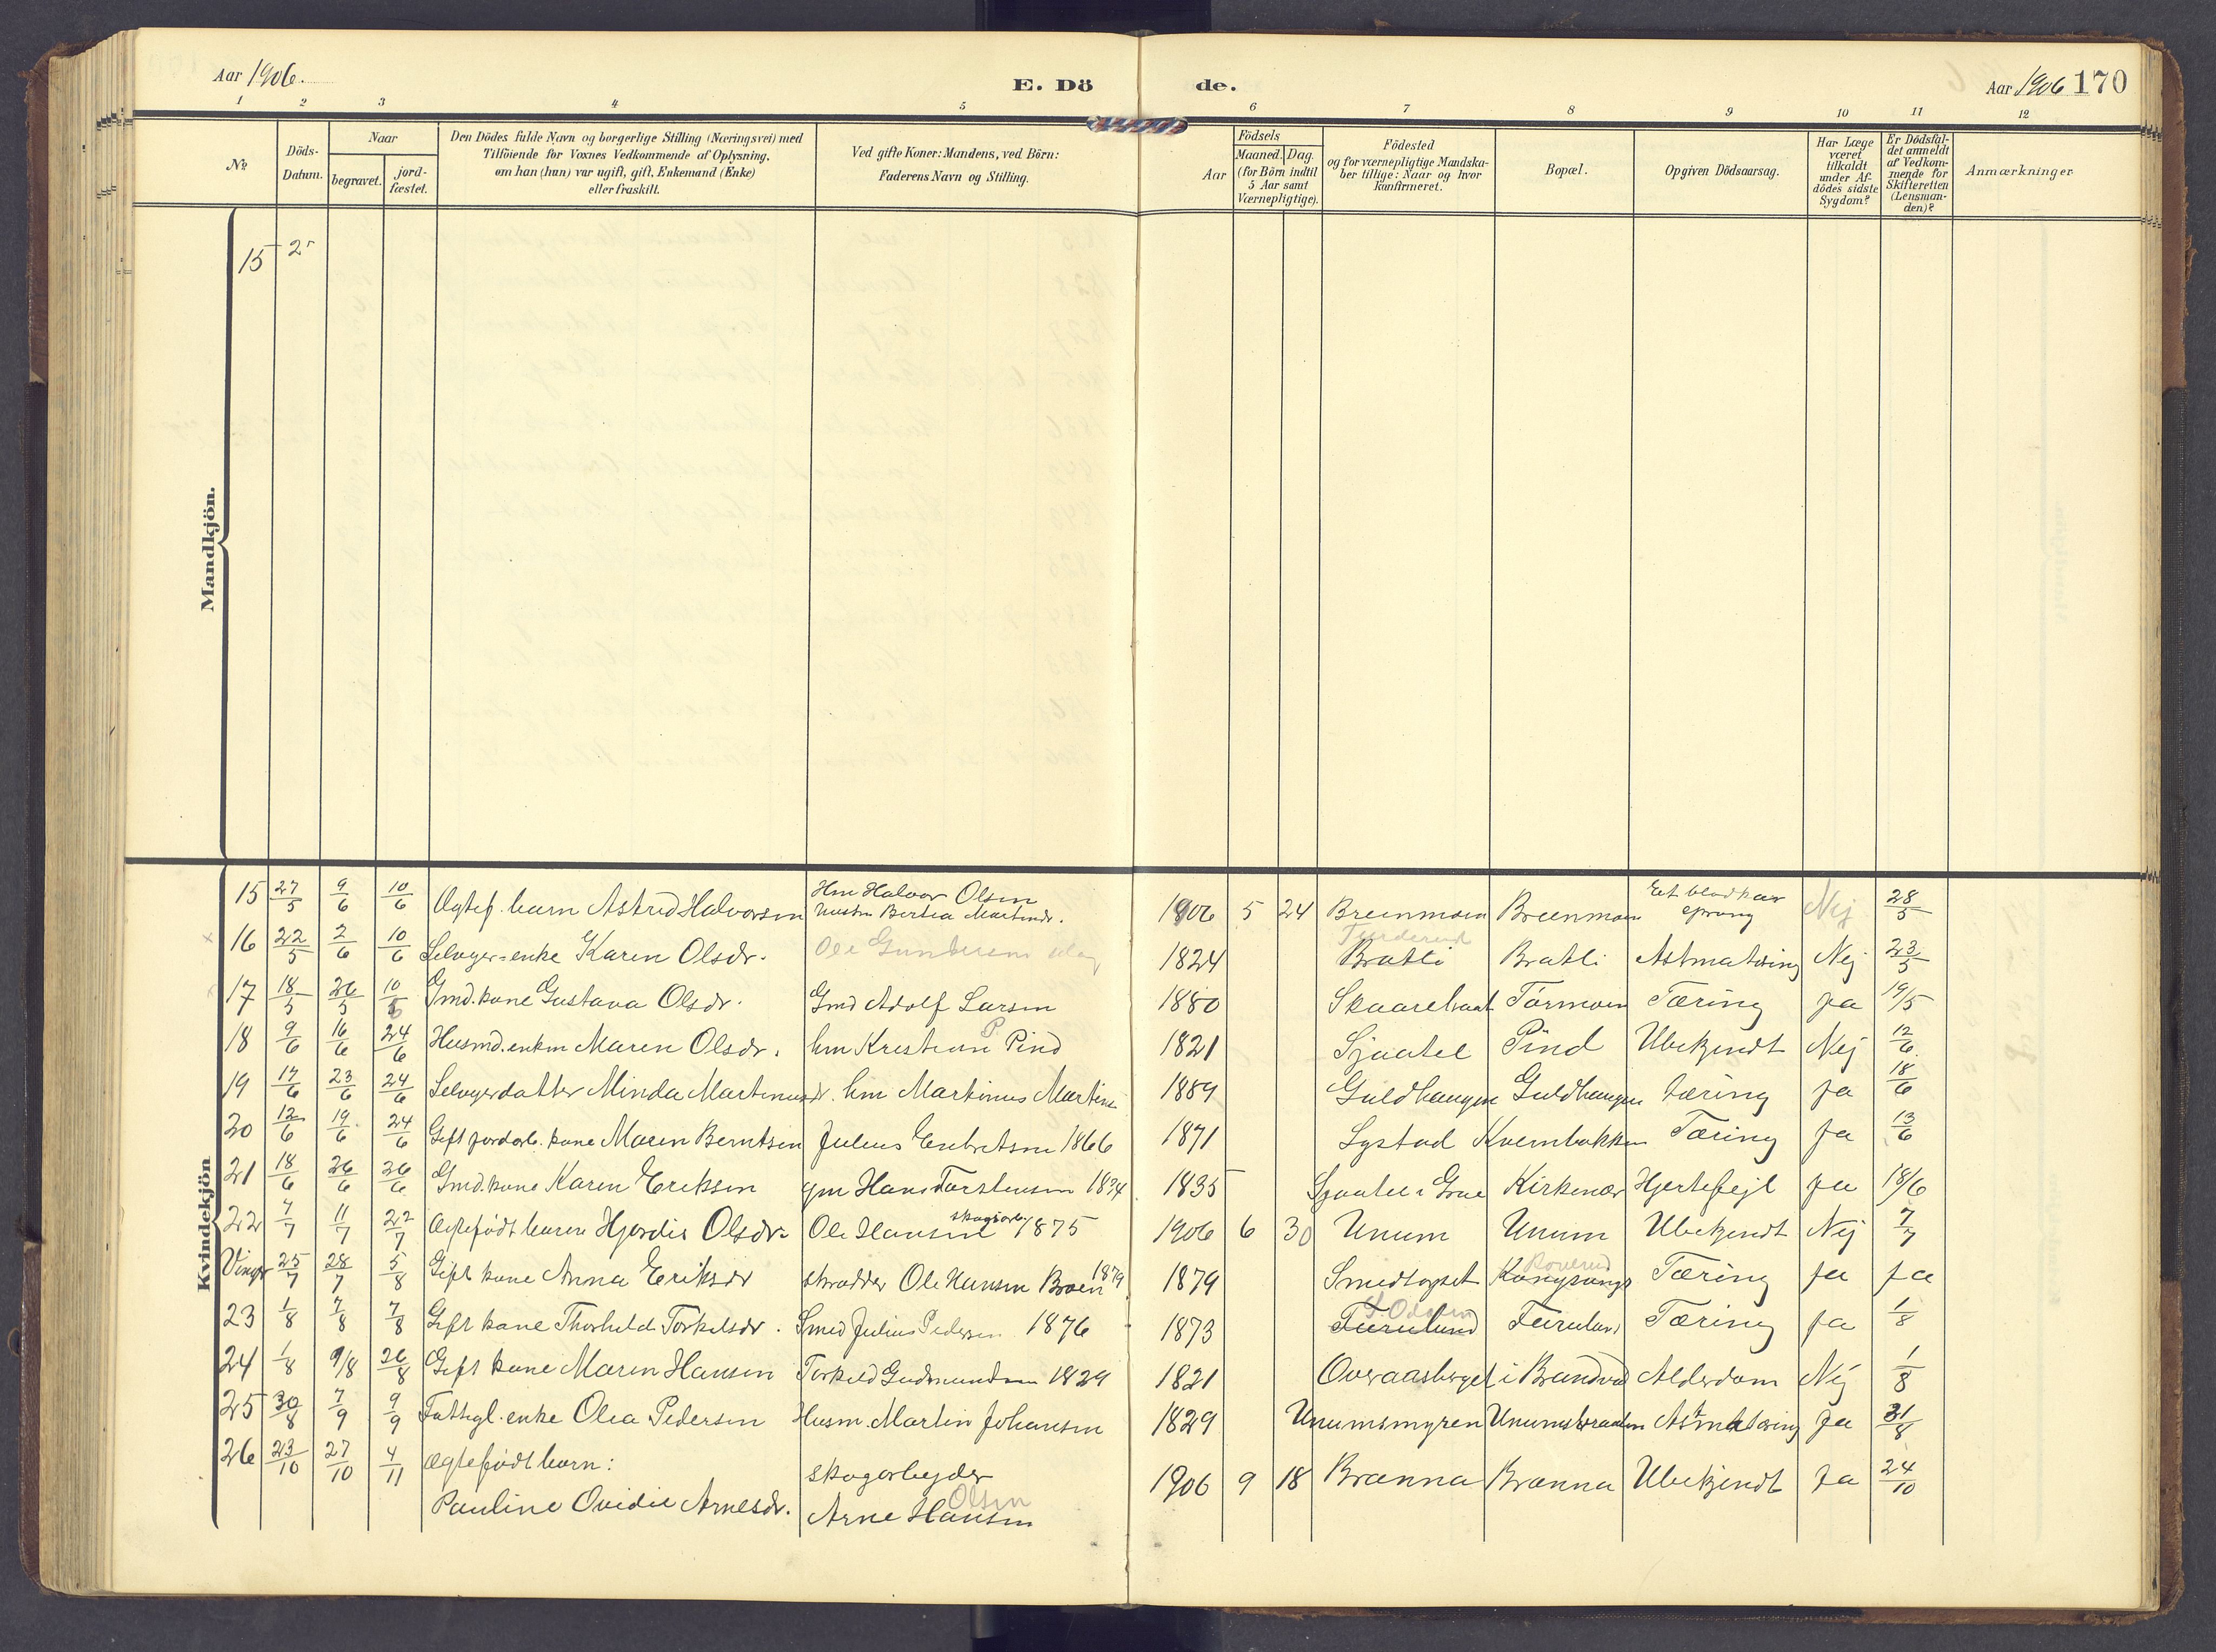 Aar 1906.
E. Dö de.
Aar 1906 170
1 2 3 4 5 6 7 8 9 10 11 12
No
Döds-Datum.
Naar
begravet.
jord-fæstet.
Den Dödes fulde Navn og borgerlige Stilling (Næringsvei) med
Tilföiende for Voxnes Vedkommende af Oplysning,
om han (hun) var ugift, gift, Enkemand (Enke)
eller fraskilt.
Ved gifte Koner: Mandens, ved Börn:
Faderens Navn og Stilling.
Aar
Födsels
Maaned. Dag.
(for Börn indtil
5 Aar samt
Værnepligtige).
Födested
og for værnepligtige Mandska-
ber tillige: Naar og hvor
konfirmeret.
Bopæl.
Opgiven Dödsaarsag.
Har Læge
været
tilkaldt
under Af-
dödes sidste
Sygdom?
Er Dödsfal-
det anmeldt
af Vedkom-
mende for
Skifteretten
(Lensman-
den)?
Anmærkninger
Mandkjön.
15
Kvindekjön
15 27/5 9/6 10/6 Ægtef. barn Astrid Halvorsen Hm Halvor Olsen Hustru Bertea Martinsdr. 1906 5 24 Breenmoen Breenmoen Et blodkar sprang Nej 28/5
16 22/5 2/6 10/6 Selveger-enke Karen Olsdr. Ole Gundersen 1824 Bratli Bratli Astmatæring Nej 23/5
17 18/5 26/5 10/6 Gmd.kone Gustava Olsdr. Gmd Adolf Larsen 1880 Tormoen Tæring ja 19/5
18 9/6 16/6 24/6 Husmd.enken Maren Olsdr. hm Kristian P Pind 1821 Sjaatel Pind Ubekjendt Nej 12/6
19 17/6 23/6 24/6 Selveyerdatter Minda Martinusdr. hm Martinus Martins 1889 Guldhaugen Guldhaugen tæring ja 18/6
20 12/6 19/6 24/6 Gift jordarb. kone Maren Berntsen Julius Enbretsen 1866 1871 Systad Kvernbakken Tæring ja 13/6
21 18/6 26/6 26/6 Gmd.kone Karen Eriksen gm Hans Torstensen 1834 1835 Sjaatel i Grue Kirkenær Hjertefejl ja 18/6
22 7/7 11/7 22/7 Ægtefødt barn Hjørdis Olsdr. Ole Hansen skogsarb. 1875 1906 6 30 Unum Unum Ubekjendt Nej 7/7
Vinger 25/7 28/7 5/8 Gift kone Anna Eriksdr skrædder Ole Hansen Broen 1879 1879 Smedtopset Roverud Tæring ja ja
23 1/8 7/8 7/8 Gift kone Thorhild Torkelsdr. Smed Julius Pedersen 1876 1873 Furulund Furulund Tæring ja 1/8
24 1/8 9/8 26/8 Gift kone Maren Hansen Torkild Gudmundsen 1829 1821 Overaasberget i Brandval Alderdom Nej 1/8
25 30/8 7/9 9/9 Fattigl. enke Olea Pedersen Husm. Martin Johansen 1829 Unumsmyren Unumsbraaten Astmatæring ja 31/8
26 23/10 27/10 4/11 ægtefødt barn: skogarbeyder 1906 9 18 Brænna Brænna Ubekjendt ja 24/10
Pauline Ovidie Arnesdr. Arne Hansen Olsen